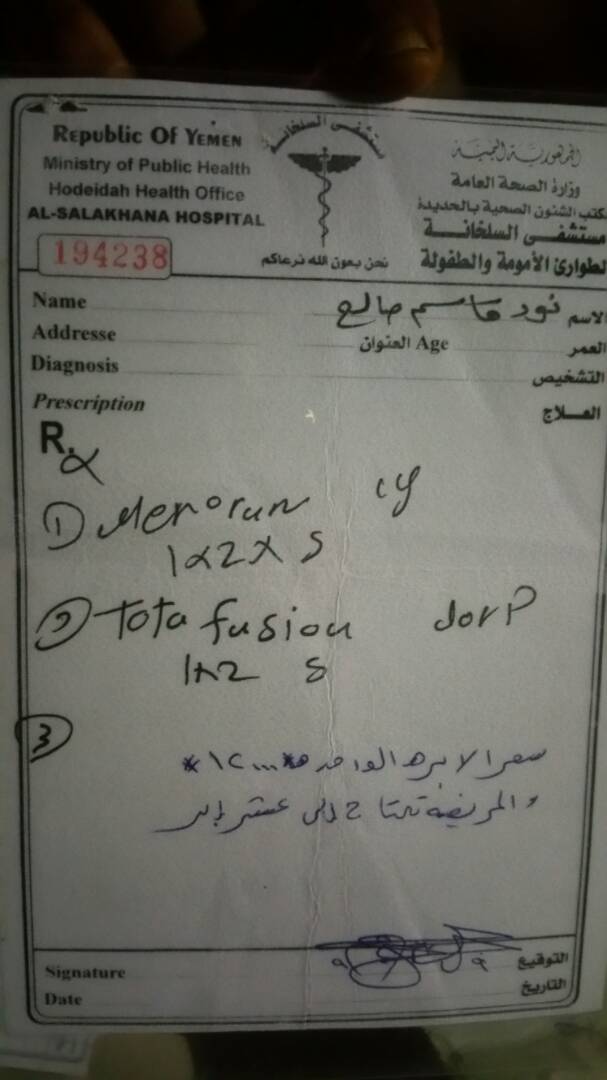 Republic Of Yemen
Ministry of Public Health
Hodeidah Health Office
AL-SALAKHANA HOSPITAL
194238
مستشفى السلخانة
نحن بعون الله نرعاكم
الجمهورية اليمنية
وزارة الصحة العامة
مكتب الشئون الصحية بالحديدة
مستشفى السلخانة
لطوارئ الأمومة والطفولة
Name نور قاسم صالح الاسم
Addresse العنوان Age العمر
Diagnosis التشخيص
Prescription العلاج
R.
1) Meronum
1x2x 5
2) Tota fusion
1x2 5
3
سعر الابره الواحده ١٢٠٠٠
والمريضة تحتاج الى عشر إبر
Signature التوقيع
Date التاريخ